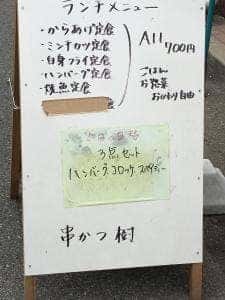 ランチメニュー
・からあげ定食
・ミンチカツ定食
・白身フライ定食
・ハンバーグ定食
・焼魚定食
All
700円
ごはん
お惣菜
おかわり自由
3点セット
ハンバーグ.コロッケ.スパゲティー
串かつ 樹